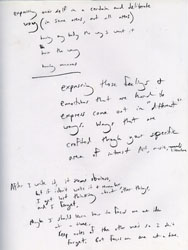 exposing over self in a certain and deliberate
way (in some areas, not all areas)
being my body the way I want it
the way
being
exposing those feelings &
emotions that are found to
express come out in "different"
ways. Ways that are
confided through your specific
area of interest Art, music,
After I write it, it seems obvious,
but I didn't write it a number
I get lost thinking about other things
and I forget.
Maybe I should learn how to focus on one idea
at a time.
Keep notes of the other ones so I don't
forget. But focus on one at a time.